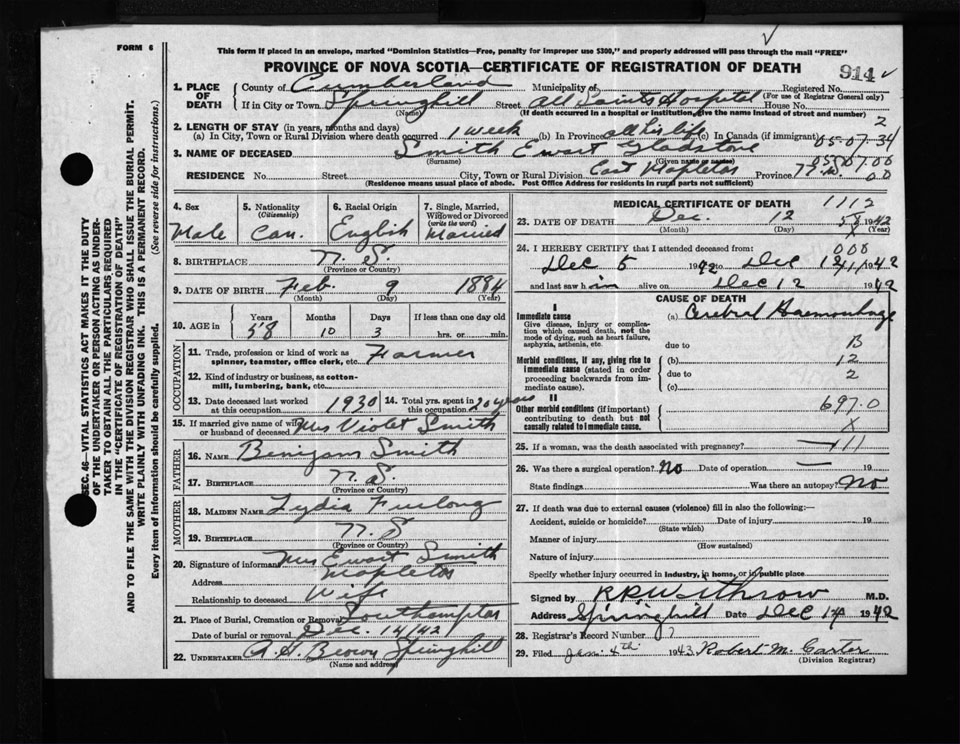 FORM 6
This form if placed in an envelope, marked "Dominion Statistics—Free, penalty for improper use $300," and properly addressed will pass through the mail "FREE"
PROVINCE OF NOVA SCOTIA—CERTIFICATE OF REGISTRATION OF DEATH
914
1. PLACE OF DEATH
County of Cumberland Municipality of Registered No.
(For use of Registrar General only)
If in City or Town Springhill Street All Saints Hospital House No.
(Name) (If death occurred in a hospital or institution, give the name instead of street and number)
2
2. LENGTH OF STAY (in years, months and days)
(a) In City, Town or Rural Division where death occurred 1 week (b) In Province all his life (c) In Canada (if immigrant)
05-07.34
3. NAME OF DECEASED Smith Ewart Gladstone
(Surname) (Given name or names)
05.07.00
RESIDENCE No. Street City, Town or Rural Division East Mapleton Province N.S.
00
(Residence means usual place of abode. Post Office Address for residents in rural parts not sufficient)
4. Sex Male
5. Nationality (Citizenship) Can.
6. Racial Origin English
7. Single, Married, Widowed or Divorced (write the word) Married
8. BIRTHPLACE N. S.
(Province or Country)
9. DATE OF BIRTH Feb. 9 1884
(Month) (Day) (Year)
10. AGE in Years 58 Months 10 Days 3 If less than one day old hrs. or min.
OCCUPATION
11. Trade, profession or kind of work as spinner, teamster, office clerk, etc. Farmer
12. Kind of industry or business, as cotton-mill, lumbering, bank, etc.
13. Date deceased last worked at this occupation 1930
14. Total yrs. spent in this occupation 20 years
15. If married give name of wife or husband of deceased Mrs Violet Smith
FATHER
16. NAME Benijam Smith
17. BIRTHPLACE N. S.
(Province or Country)
MOTHER
18. MAIDEN NAME Lydia Furlong
19. BIRTHPLACE N. S
(Province or Country)
20. Signature of informant Mrs Ewart Smith
Address Mapleton
Relationship to deceased Wife
21. Place of Burial, Cremation or Removal Southampton
Date of burial or removal Dec. 14/42
22. UNDERTAKER A. H. Brown Springhill
(Name and address)
MEDICAL CERTIFICATE OF DEATH 1112
23. DATE OF DEATH Dec. 12 1942
58
X
(Month) (Day) (Year)
24. I HEREBY CERTIFY that I attended deceased from:
000
Dec 5 1942 to Dec 12 1942
and last saw him alive on Dec 12 1942
CAUSE OF DEATH
I
Immediate cause
Give disease, injury or complication which caused death, not the mode of dying, such as heart failure, asphyxia, asthenia, etc.
(a) Cerebral Haemorrhage
due to B
Morbid conditions, if any, giving rise to immediate cause (stated in order proceeding backwards from immediate cause).
(b) 12
due to 2
(c)
II
Other morbid conditions (if important) contributing to death but not causally related to immediate cause.
697.0
X
25. If a woman, was the death associated with pregnancy? — 11
26. Was there a surgical operation? No Date of operation — 19
State findings Was there an autopsy? No
27. If death was due to external causes (violence) fill in also the following:—
Accident, suicide or homicide? Date of injury 19
(State which)
Manner of injury
(How sustained)
Nature of injury
Specify whether injury occurred in industry, in home, or in public place
Signed by R R Withrow M.D.
Address Springhill Date Dec 14 1942
28. Registrar's Record Number
29. Filed Jan. 4th 1943 Robert M. Carter
(Division Registrar)
SEC. 46—VITAL STATISTICS ACT MAKES IT THE DUTY
OF THE UNDERTAKER OR PERSON ACTING AS UNDER-
TAKER TO OBTAIN ALL THE PARTICULARS REQUIRED
IN THE "CERTIFICATE OF REGISTRATION OF DEATH"
AND TO FILE THE SAME WITH THE DIVISION REGISTRAR WHO SHALL ISSUE THE BURIAL PERMIT.
WRITE PLAINLY WITH UNFADING INK. THIS IS A PERMANENT RECORD.
Every item of information should be carefully supplied. (See reverse side for instructions.)